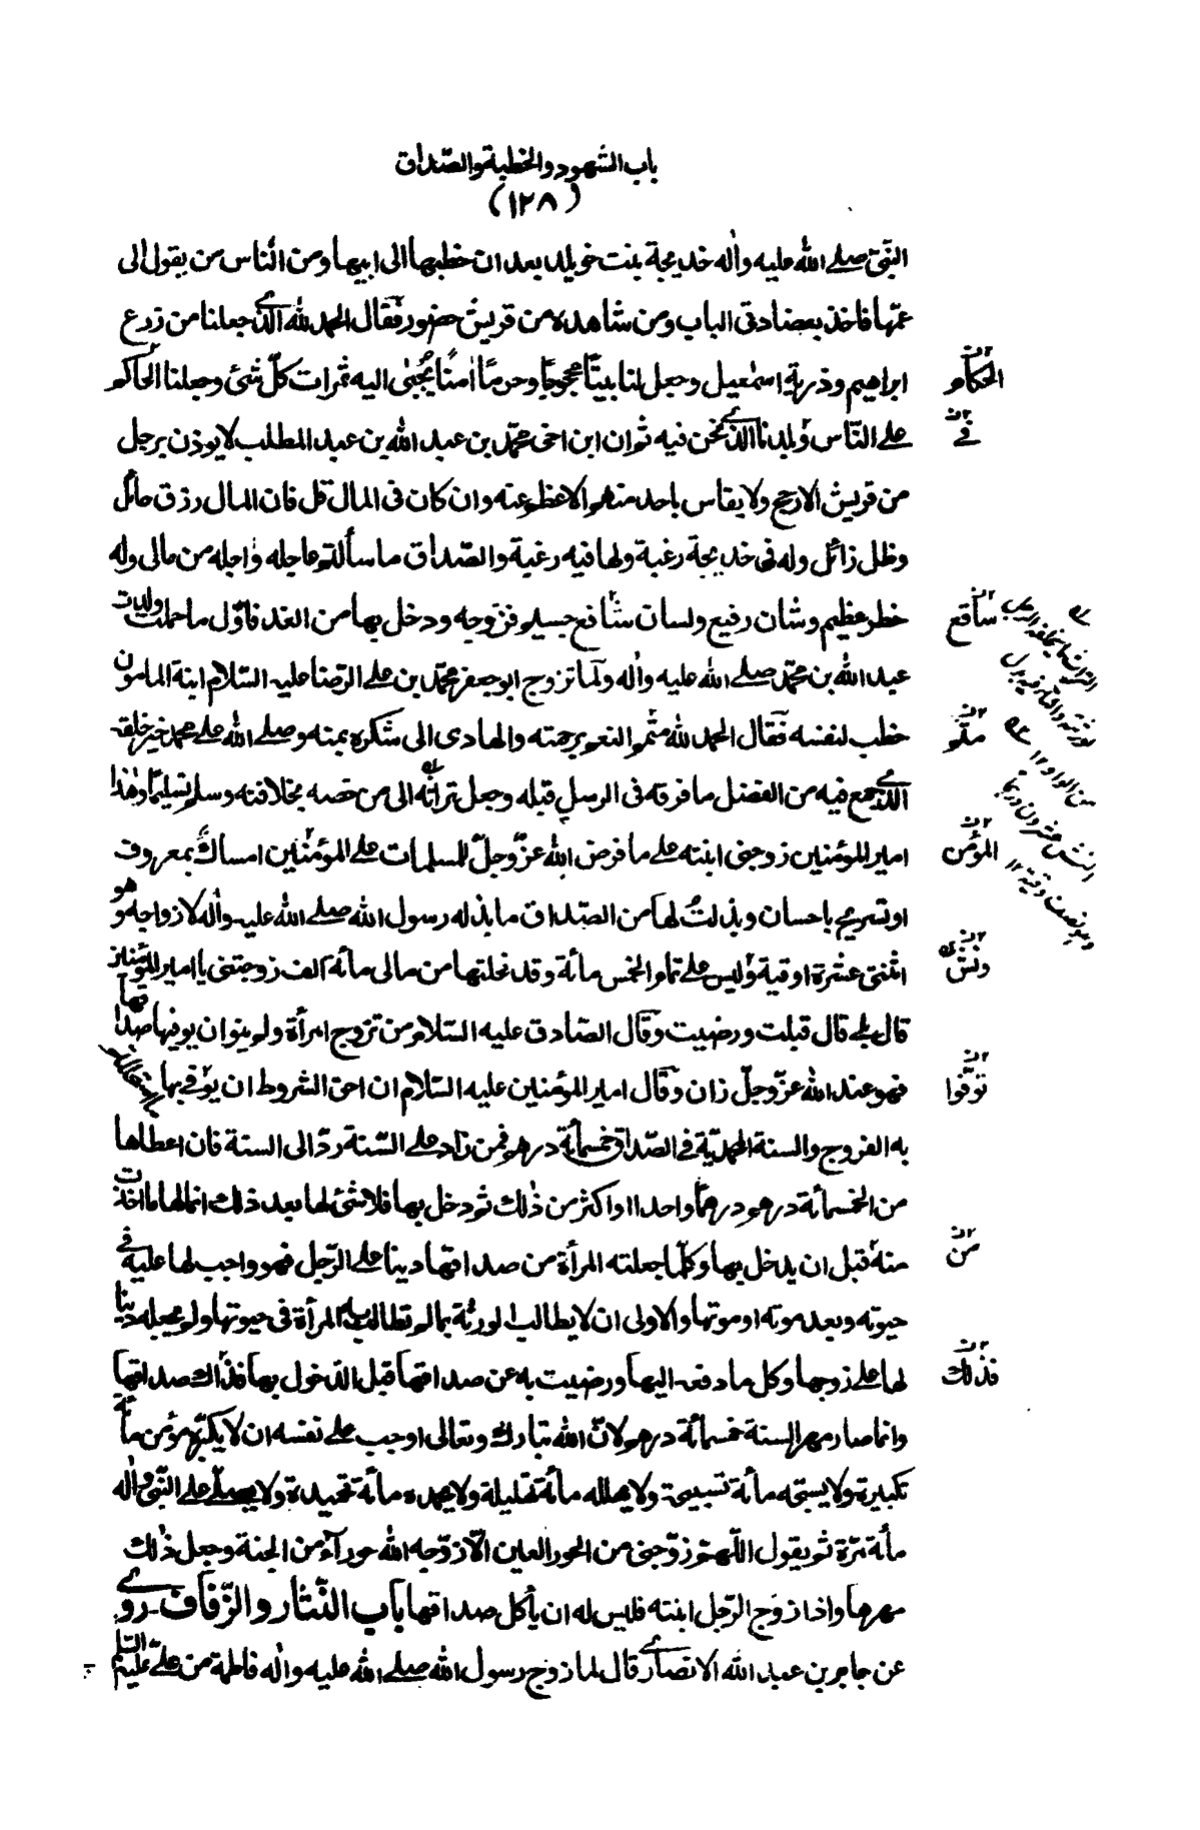 باب الشهود والخطبة والصّداق
(١٢٨)
النّبىّ صلى الله عليه واٰله خديجة بنت خويلد بعد ان خطبها الى ابيها ومن النّاس من يقول الى
عمّها فاخذ بعضادتى الباب ومن شاهده من قريش حضور فقال الحمد لله الّذى جعلنا من زرع
ابراهيم وذرية اسمٰعيل وجعل لنا بيتًا محجوجًا وحرمًا اٰمنًا يُجبٰى اليه ثمرات كلّ شئ وجعلنا الحاكم
الحكام
على النّاس وبلدنا الّذى نحن فيه ثم ان ابن اخى محمّد بن عبد الله بن عبد المطلب لا يوذن برجل
فى
من قريش الا رجح ولا يقاس باحد منهم الا عظم عنه وان كان فى المال قل فان المال رزق حائل
وظل زائل وله فى خديجة رغبة ولها فيه رغبة والصّداق ما سألتم عاجله واٰجله من مالى وله
خطر عظيم وشان رفيع ولسان شافع جسيم فزوجه ودخل بها من الغد فاوّل ما حملت ولدت
عبد الله بن محمّد صلى الله عليه واٰله ولمّا تزوج ابو جعفر محمّد بن على الرّضا عليه السّلام ابنة المامون
خطب لنفسه فقال الحمد لله متمّم النعم برحمته والهادى الى شكره بمنه وصلى الله على محمد خير خلقه
الّذى جمع فيه من الفضل ما فرقه فى الرسل قبله وجعل تراثه الى من خصه بخلافته وسلم تسليمًا وهٰذا
امير المؤمنين زوجنى ابنته على ما فرض الله عزّ وجلّ للمسلمات على المؤمنين امساك بمعروف
المؤمن
او تسريح باحسان وبذلت لها من الصّداق ما بذله رسول الله صلى الله عليه واٰله لازواجه وهو
اثنتى عشرة اوقية وليس على تمام الخمس مائة وقد نحلتها من مالى مائة الف زوجتنى يا امير المؤمنين
ونش
قال بلى قال قبلت ورضيت وقال الصّادق عليه السّلام من تزوج امرأة ولم ينو ان يوفيها صداقها
فهو عند الله عزّ وجلّ زان وقال امير المؤمنين عليه السّلام ان احق الشروط ان يوفى بها ما استحللتم
توفوا
به الفروج والسنة المحمديّة فى الصّداق خمسمائة درهم فمن زاد على السّنة ردّ الى السنة فان اعطاها
من الخمسمائة درهم درهمًا واحدا او اكثر من ذٰلك ثم دخل بها فلا شئ لها بعد ذٰلك انما لها ما اخذت
منه قبل ان يدخل بها وكلّما جعلته المرأة من صداقها دينا على الرّجل فهو واجب لها عليه فى
من
حيوته وبعد موته او موتها والاولى ان لا يطالب الورثة بما لم تطالب به المرأة فى حيوتها ولم يجعله دينا
لها على زوجها وكل ما دفعه اليها ورضيت به عن صداقها قبل الدّخول بها فذاك صداقها
فذلك
وانما صار مهر السنة خمسمائة درهم لانّ الله تبارك وتعالى اوجب على نفسه ان لا يكبّره مؤمن مائة
تكبيرة ولا يسبّحه مائة تسبيحة ولا يهلله مائة تهليلة ولا يحمده مائة تحميدة ولا يصلّى على النّبى واٰله
مائة مرّة ثم يقول اللّهمّ زوّجنى من الحور العين الّا زوّجه الله حوراء من الجنة وجعل ذٰلك
مهرها واذا زوّج الرّجل ابنته فليس له ان يأكل صداقها باب النّثار والزّفاف روى
عن جابر بن عبد الله الانصارى قال لما زوّج رسول الله صلى الله عليه واٰله فاطمة من علىّ عليهم السّلام